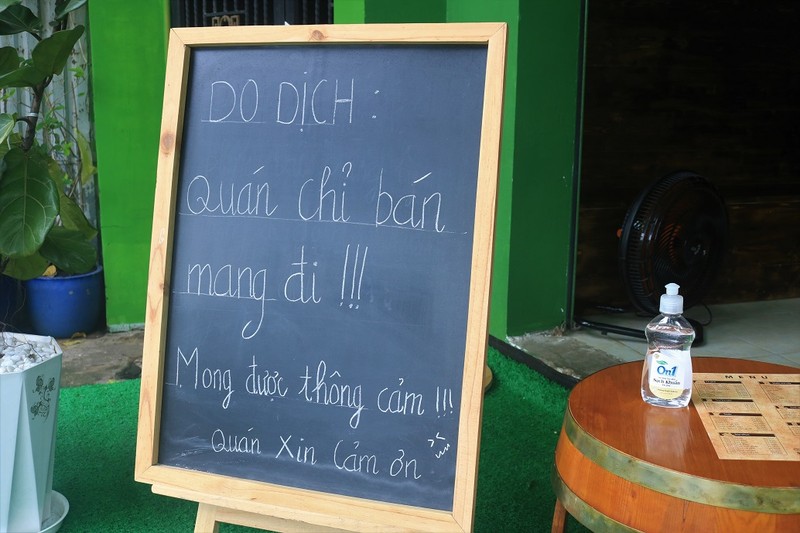 DO DỊCH :
Quán chỉ bán
mang đi !!!
Mong được thông cảm !!!
Quán Xin Cảm ơn
On1
MENU